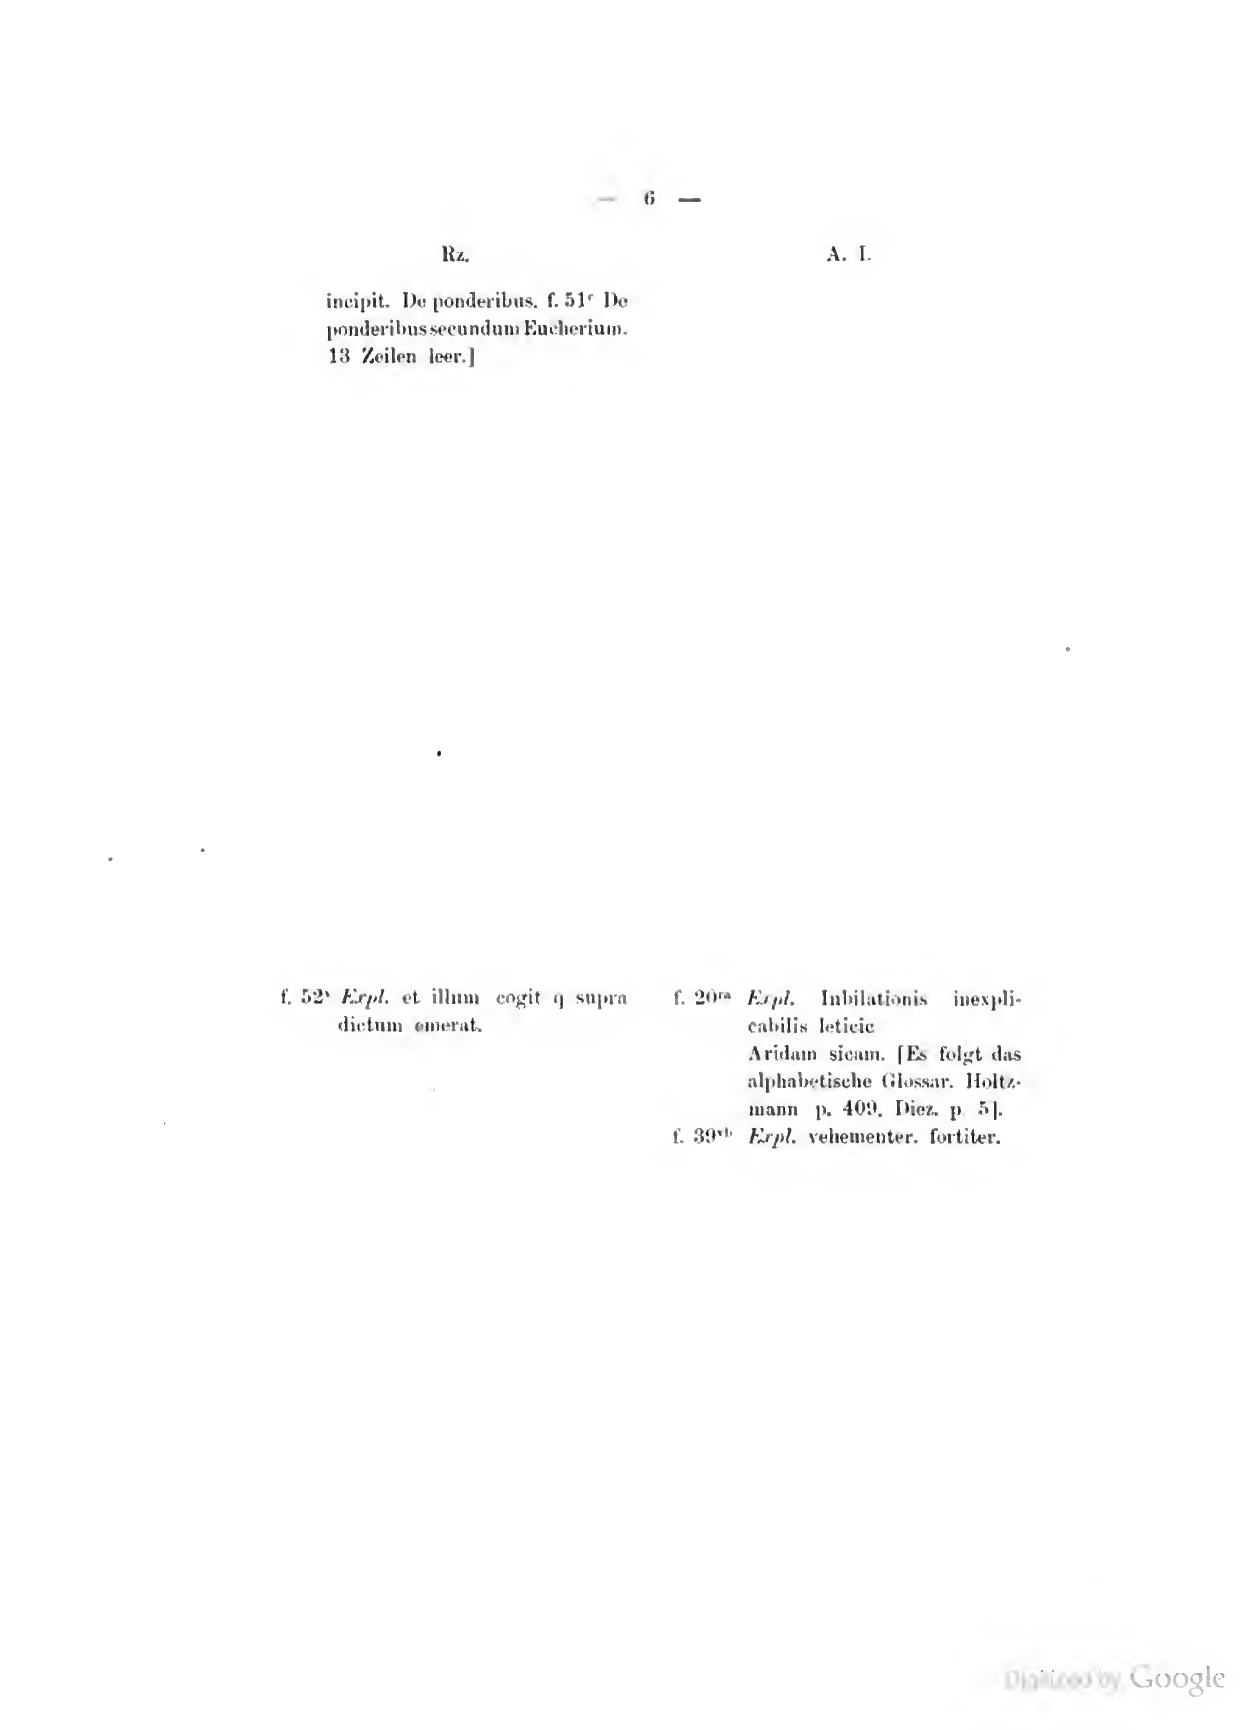 — 6 —
Rz.
incipit. De ponderibus. f. 51r De
ponderibus secundum Eucherium.
13 Zeilen leer.]
f. 52v Expl. et illum cogit q supra
dictum emerat.
A. I.
f. 20ra Expl. Iubilationis inexpli-
cabilis leticie
Aridam sicam. [Es folgt das
alphabetische Glossar. Holtz-
mann p. 409. Diez. p 5].
f. 39vb Expl. vehementer. fortiter.
Digitized by Google